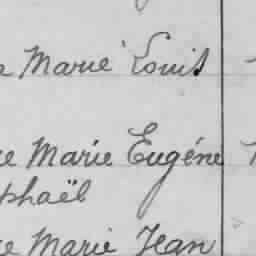 e Marie Louis
e Marie Eugéne
phaël
e Marie Jean